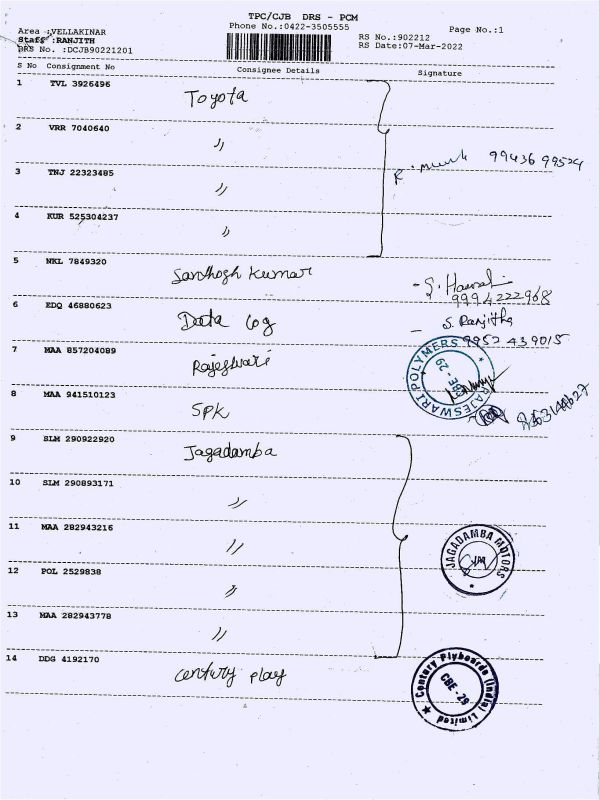 TPC/CJB DRS - PCM
Area :VELLAKINAR Phone No.:0422-3505555 Page No.:1
Staff :RANJITH RS No.:902212
DRS No. :DCJB90221201 RS Date:07-Mar-2022
S No Consignment No Consignee Details Signature
1 TVL 3926496 Toyota
2 VRR 7040640 〃
99436 99524
3 TNJ 22323485 〃
4 KUR 525304237 〃
5 NKL 7849320 Santhosh Kumar
9994222968
6 EDQ 46880623 Data Log - S. Ranjitha
9952439015
7 MAA 857204089 Rajeshwari
RAJESWARI POLYMERS CBE-29
8 MAA 941510123 SPK
9 SLM 290922920 Jagadamba
10 SLM 290893171 〃
11 MAA 282943216 〃
JAGADAMBA MOTORS
12 POL 2529838 〃
13 MAA 282943778 〃
14 DDG 4192170 century play
Century Plyboards (India) Limited CBE - 29